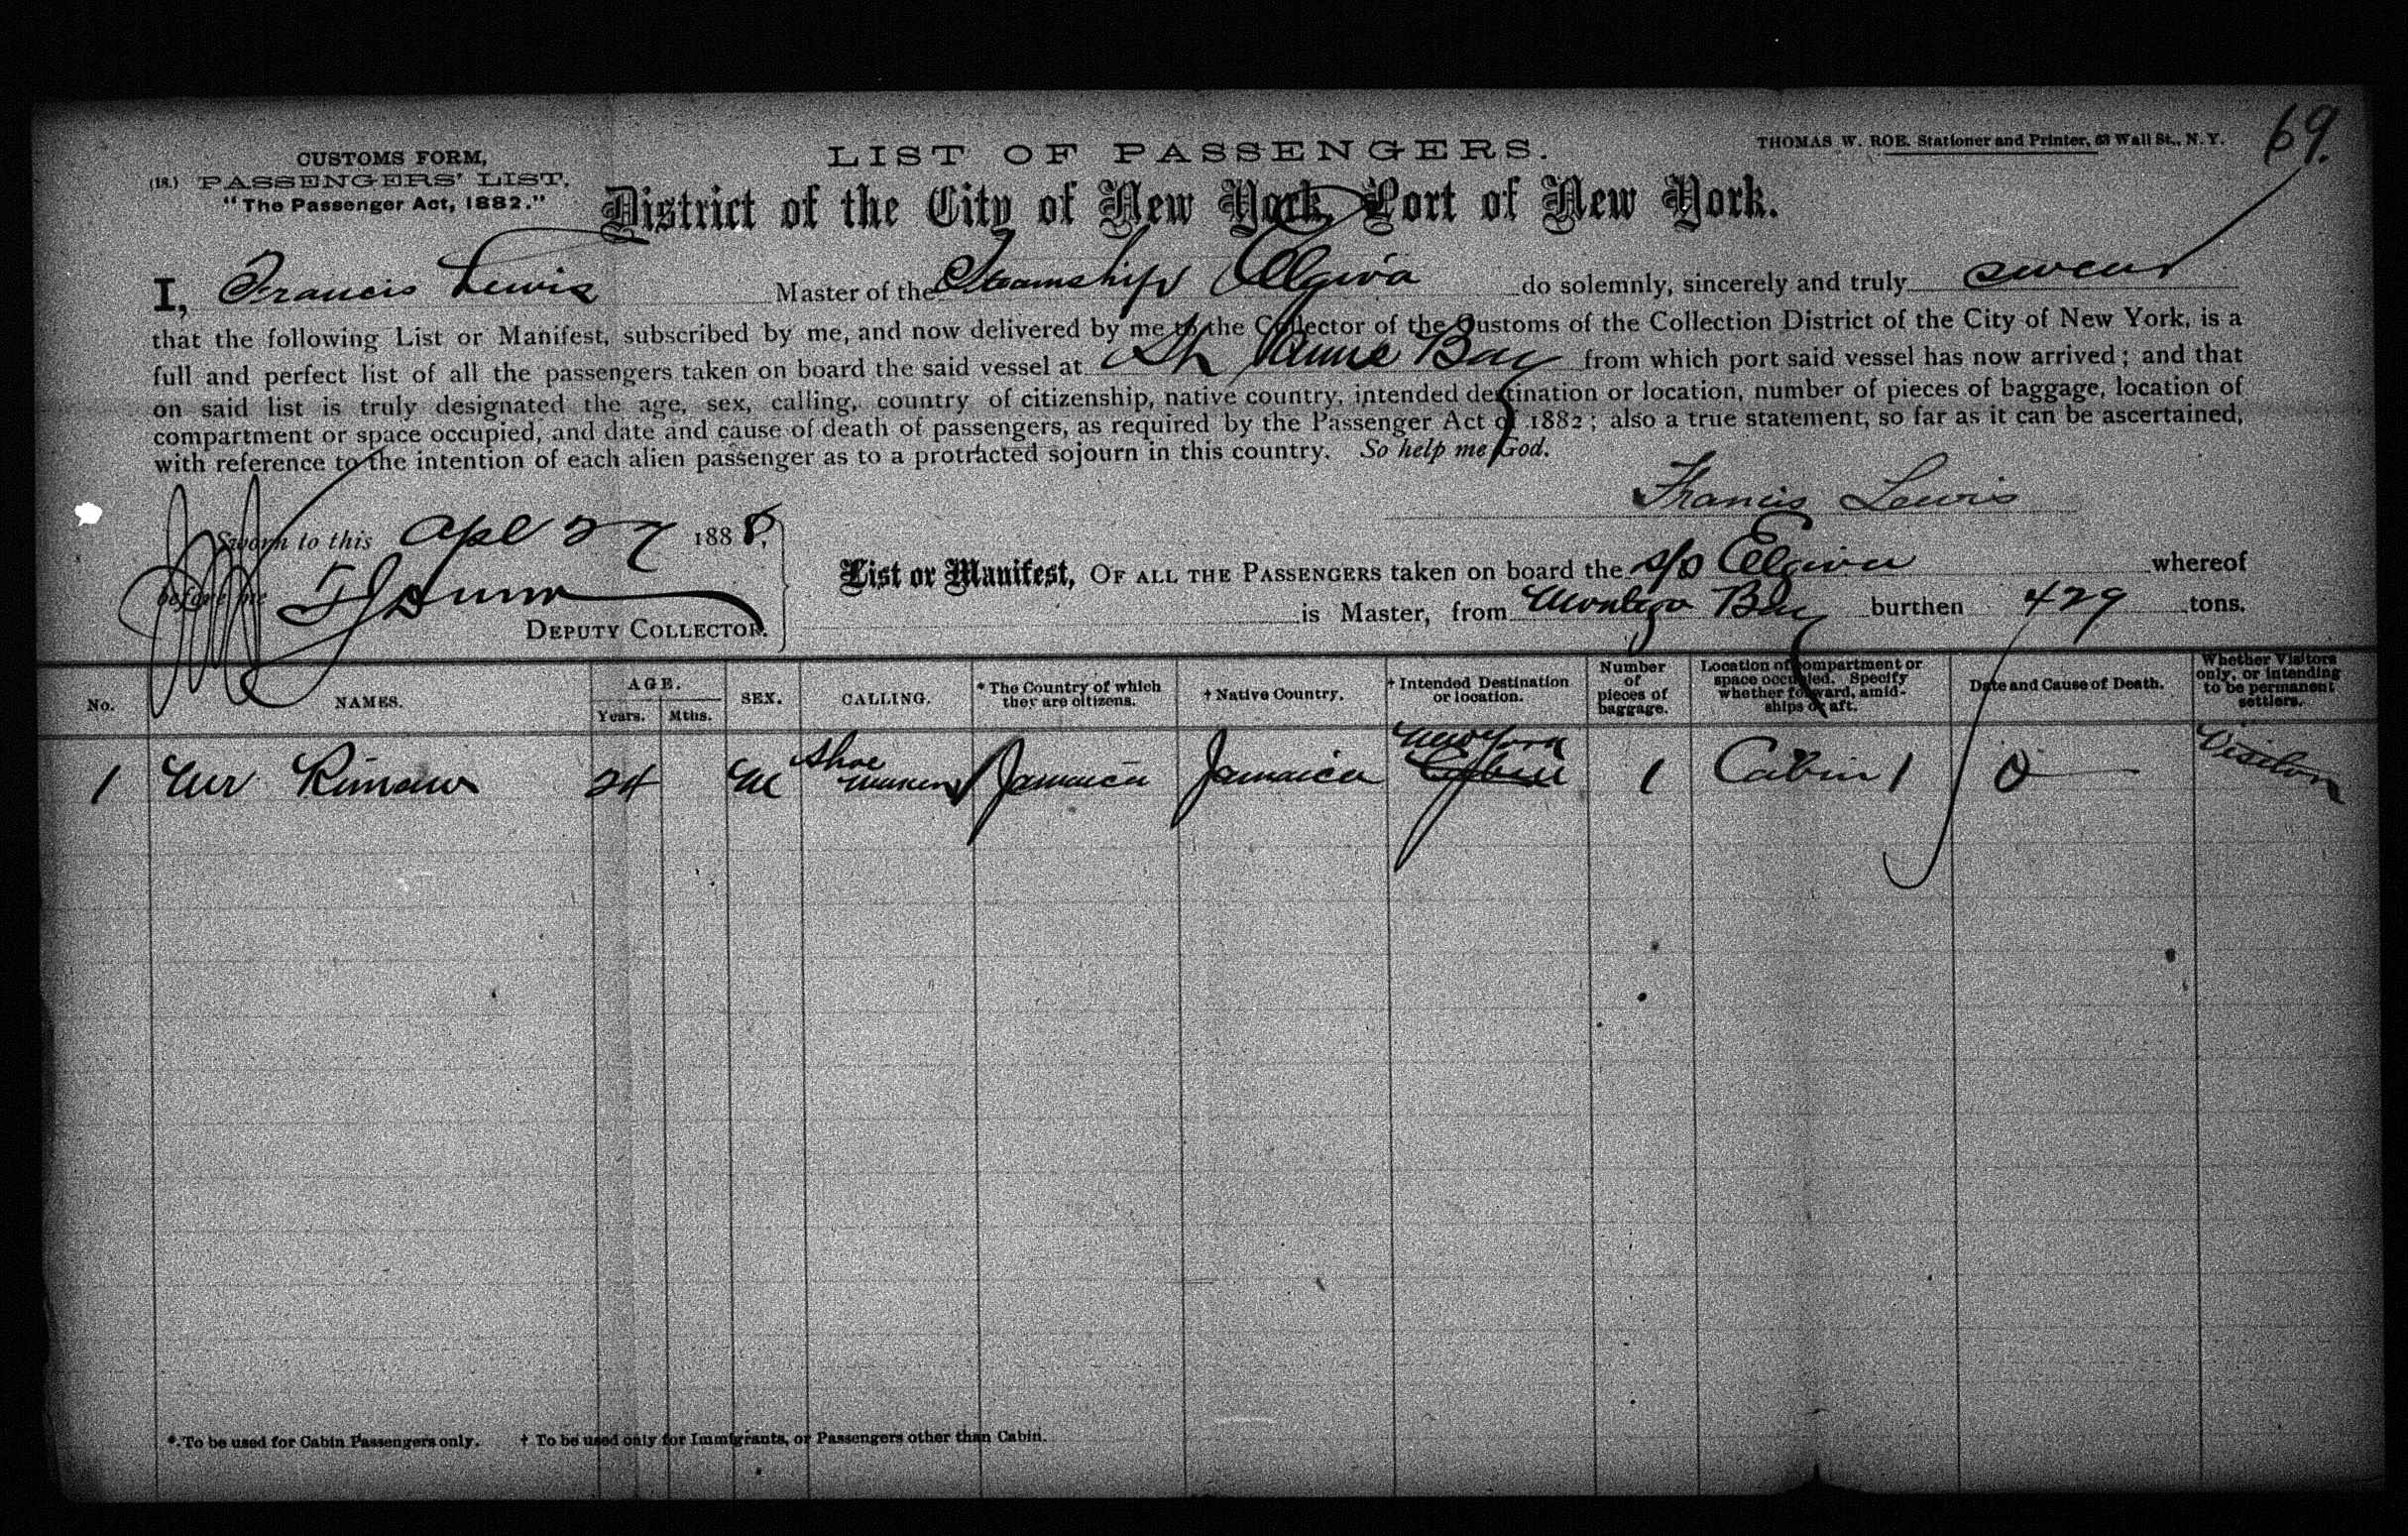 69.
CUSTOMS FORM,
(18.) PASSENGERS' LIST,
"The Passenger Act, 1882."
LIST OF PASSENGERS.
THOMAS W. ROE. Stationer and Printer, 63 Wall St., N. Y.
District of the City of New York, Port of New York.
I, Francis Lewis Master of the Steamship Elgiva do solemnly, sincerely and truly swear
that the following List or Manifest, subscribed by me, and now delivered by me to the Collector of the Customs of the Collection District of the City of New York, is a
full and perfect list of all the passengers taken on board the said vessel at Bay from which port said vessel has now arrived; and that
on said list is truly designated the age, sex, calling, country of citizenship, native country, intended destination or location, number of pieces of baggage, location of
compartment or space occupied, and date and cause of death of passengers, as required by the Passenger Act of 1882; also a true statement, so far as it can be ascertained,
with reference to the intention of each alien passenger as to a protracted sojourn in this country. So help me God.
Francis Lewis
Sworn to this Apl 27 1888,
before me
DEPUTY COLLECTOR.
List or Manifest, OF ALL THE PASSENGERS taken on board the s/s Elgiva whereof
is Master, from Montego Bay burthen 429 tons.
No. NAMES. AGE. Years. Mths. SEX. CALLING. * The Country of which they are citizens. † Native Country. † Intended Destination or location. Number of pieces of baggage. Location of compartment or space occupied. Specify whether forward, amidships or aft. Date and Cause of Death. Whether Visitors only, or intending to be permanent settlers.
1 Mr 24 M Shoe maker Jamaica Jamaica New York Cabin 1 Cabin 1 0 Visitor
*.To be used for Cabin Passengers only. † To be used only for Immigrants, or Passengers other than Cabin.